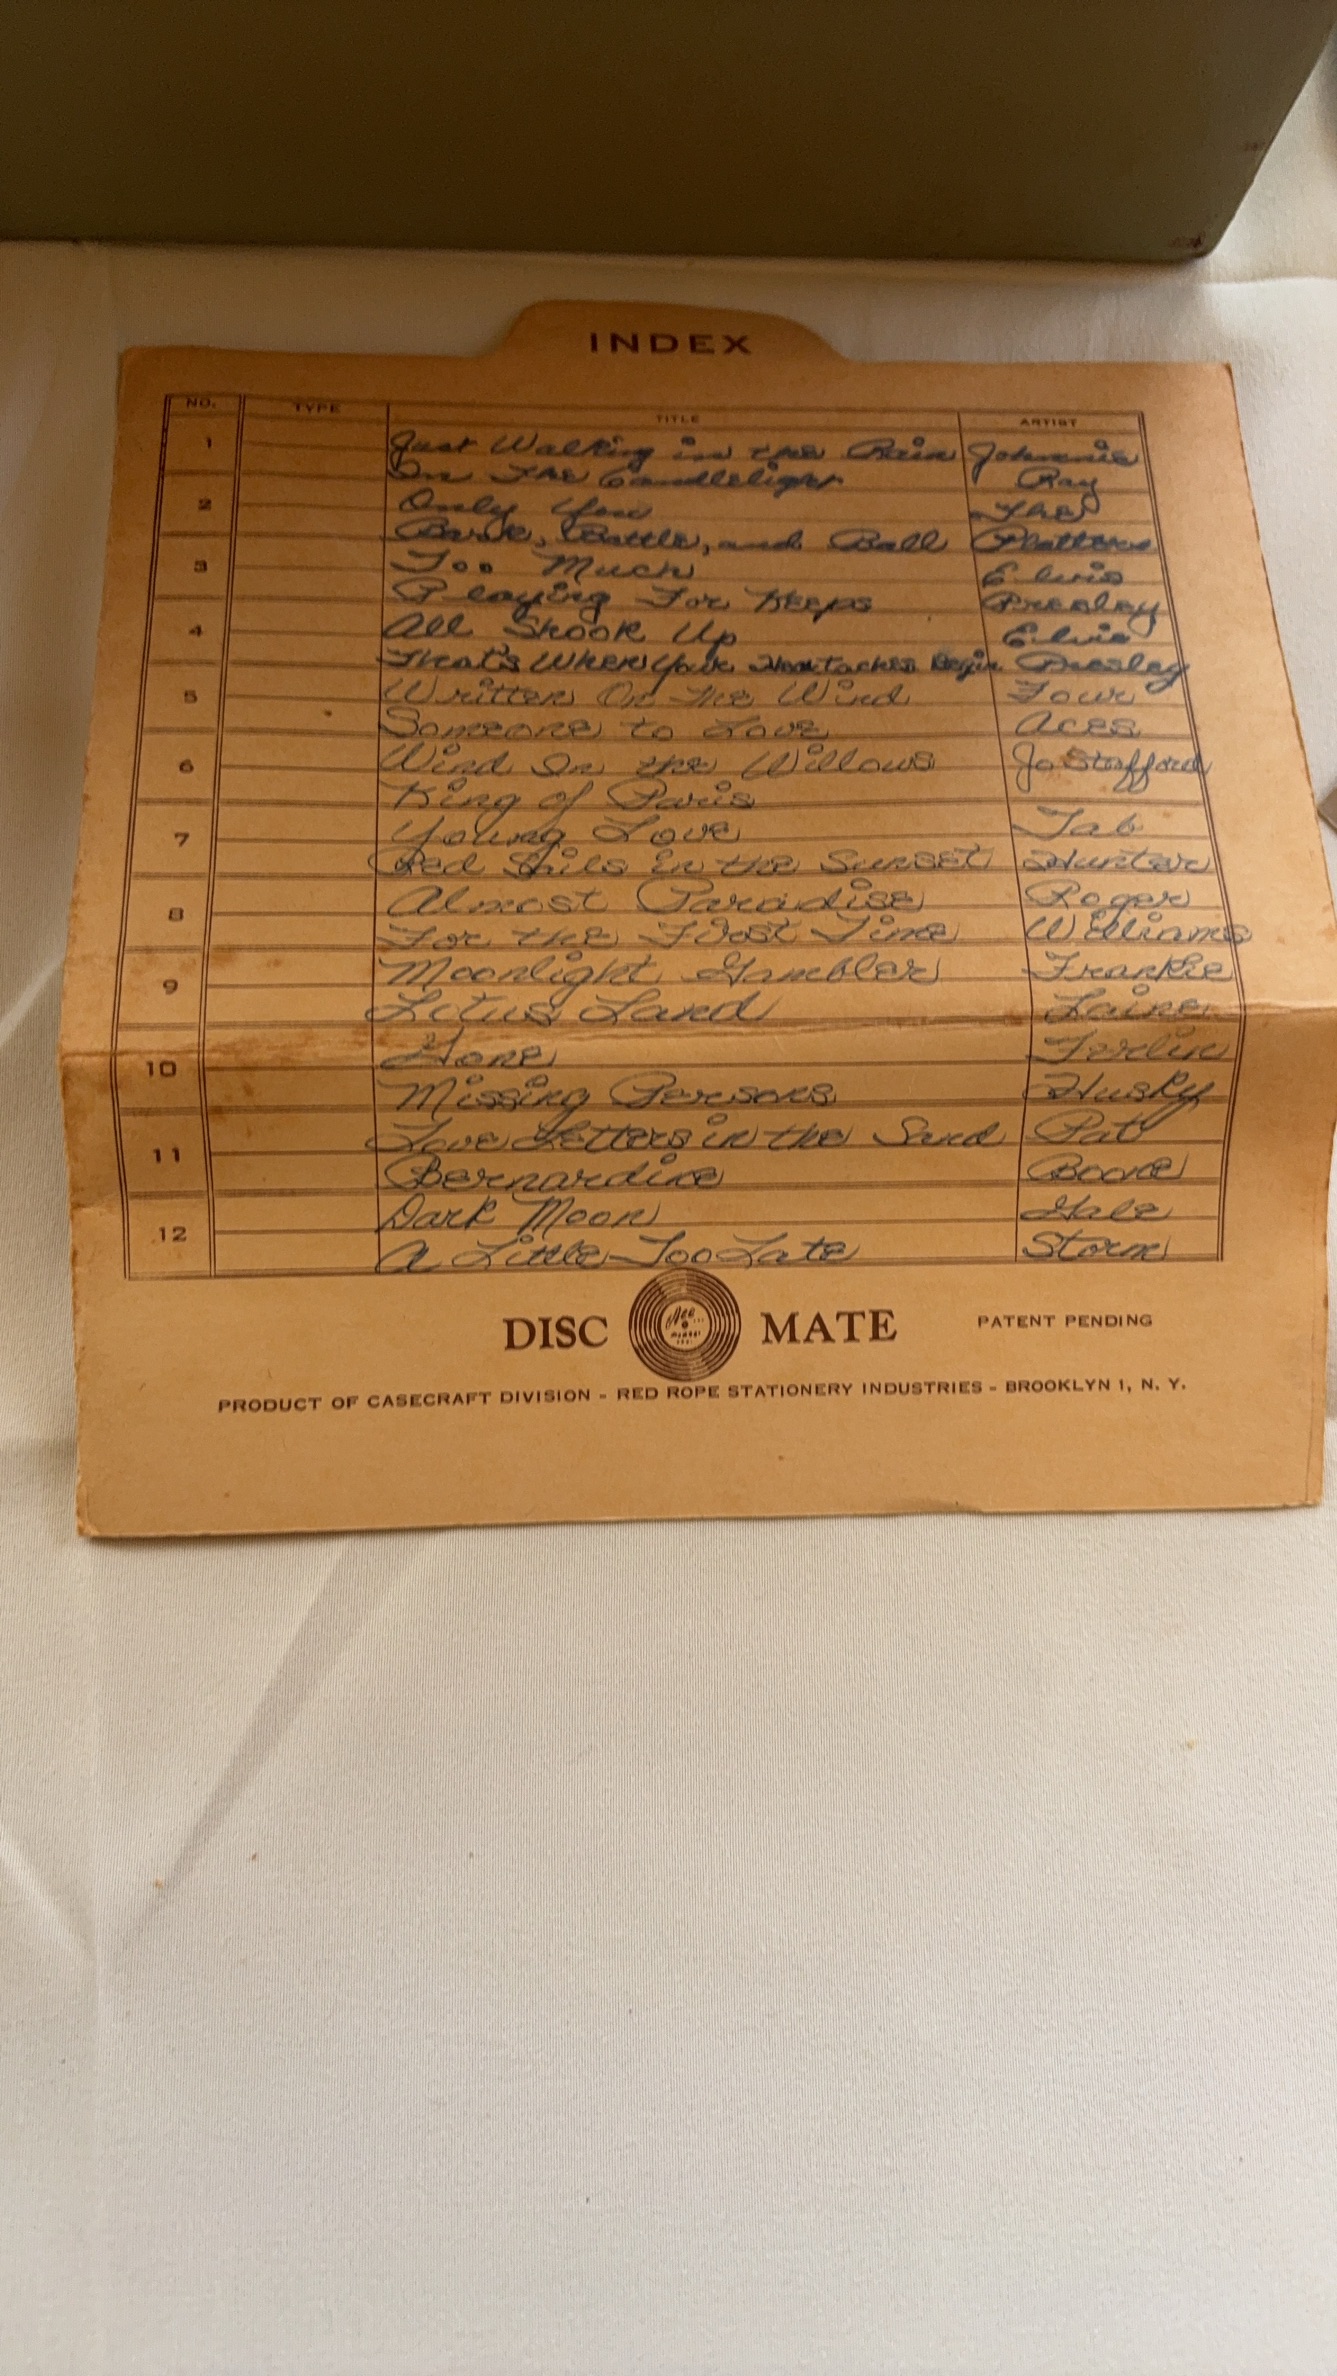 INDEX
NO. TYPE TITLE ARTIST
1 Just Walking in the Rain Johnnie
In The Candlelight Ray
2 Only You The
Bark, Battle, and Ball Platters
3 Too Much Elvis
Playing For Keeps Presley
4 All Shook Up Elvis
That's When Your Heartaches Begin Presley
5 Written On The Wind Four
Someone to Love Aces
6 Wind In the Willows Jo Stafford
King of Paris
7 Young Love Tab
Red Sails in the Sunset Hunter
8 Almost Paradise Roger
For the First Time Williams
9 Moonlight Gambler Frankie
Lotus Land Laine
10 Gone Ferlin
Missing Persons Husky
11 Love Letters in the Sand Pat
Bernardine Boone
12 Dark Moon Gale
A Little Too Late Storm
DISC MATE PATENT PENDING
PRODUCT OF CASECRAFT DIVISION - RED ROPE STATIONERY INDUSTRIES - BROOKLYN 1, N. Y.